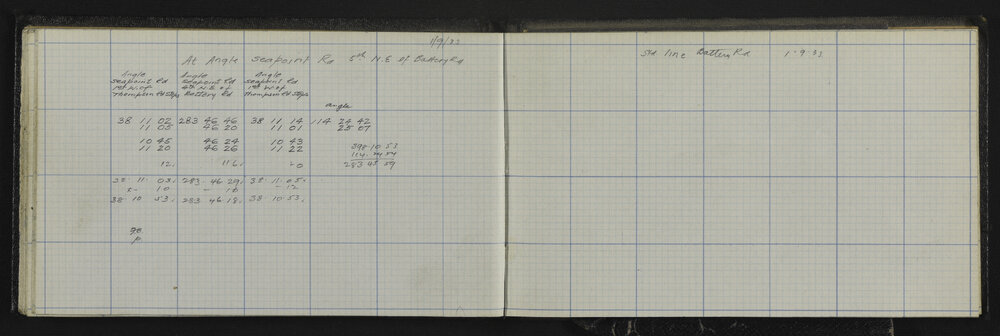 1/9/33
At Angle Seapoint Rd 5th N.E of Battery Rd
Angle Angle Angle
Seapoint Rd Seapoint Rd Seapoint Rd
1st N. of 4th N.E of 1st W of
Thompson Rd Steps Battery Rd Thompson Rd Steps
angle
38 11 02 283 46 46 38 11 14 114 24 42
11 05 46 20 11 01 25 07
10 45 46 24 10 43
11 20 46 26 11 22 398 10 53
12. 116. 20 283 45 59
38. 11. 03. 283. 46 29. 38. 11. 05.
10 - -12
38 10 53. 283 46 18. 38. 10. 53.
p.
Std line Battery Rd 1.9.33